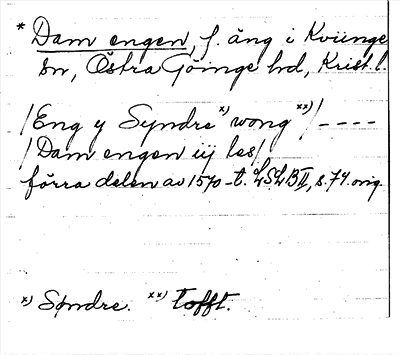 * Dam engen, f. äng i Kviinge
sn, Östra Göinge hd, Krist. l.
/Eng y Syndre x) wong xx)/----
/Dam engen iij les/
förra delen av 1570-t. LSLB II, s. 74 orig.
x) Søndre. xx) Tofft.